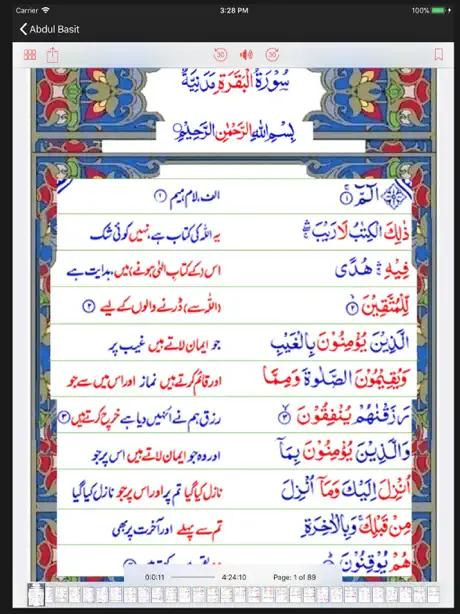 Carrier 3:28 PM 100%
Abdul Basit
30 30
سُوْرَةُ الْبَقَرَةِ مَدَنِيَّةٌ
بِسْمِ اللّٰهِ الرَّحْمٰنِ الرَّحِيْمِ
الٓمّٓ ۚ﴿۱﴾ الف، لام، میم ﴿۱﴾
ذٰلِكَ الْكِتٰبُ لَا رَيْبَ ۛۚ یہ اللہ کی کتاب ہے، نہیں کوئی شک
فِيْهِ ۛۚ هُدًى اس (کے کتابِ الٰہی ہونے) میں، ہدایت ہے
لِّلْمُتَّقِيْنَ ﴿۲﴾ (اللہ سے) ڈرنے والوں کے لیے ﴿۲﴾
الَّذِيْنَ يُؤْمِنُوْنَ بِالْغَيْبِ جو ایمان لاتے ہیں غیب پر
وَيُقِيْمُوْنَ الصَّلٰوةَ وَمِمَّا اور قائم کرتے ہیں نماز اور اس میں سے جو
رَزَقْنٰهُمْ يُنْفِقُوْنَ ﴿۳﴾ رزق ہم نے انہیں دیا ہے خرچ کرتے ہیں ﴿۳﴾
وَالَّذِيْنَ يُؤْمِنُوْنَ بِمَآ اور وہ جو ایمان لاتے ہیں اس پر جو
اُنْزِلَ اِلَيْكَ وَمَآ اُنْزِلَ نازل کیا گیا تم پر اور اس پر جو نازل کیا گیا
مِنْ قَبْلِكَ ۚ وَبِالْاٰخِرَةِ تم سے پہلے اور آخرت پر بھی
هُمْ يُوْقِنُوْنَ
0:0:11 4:24:10 Page: 1 of 89